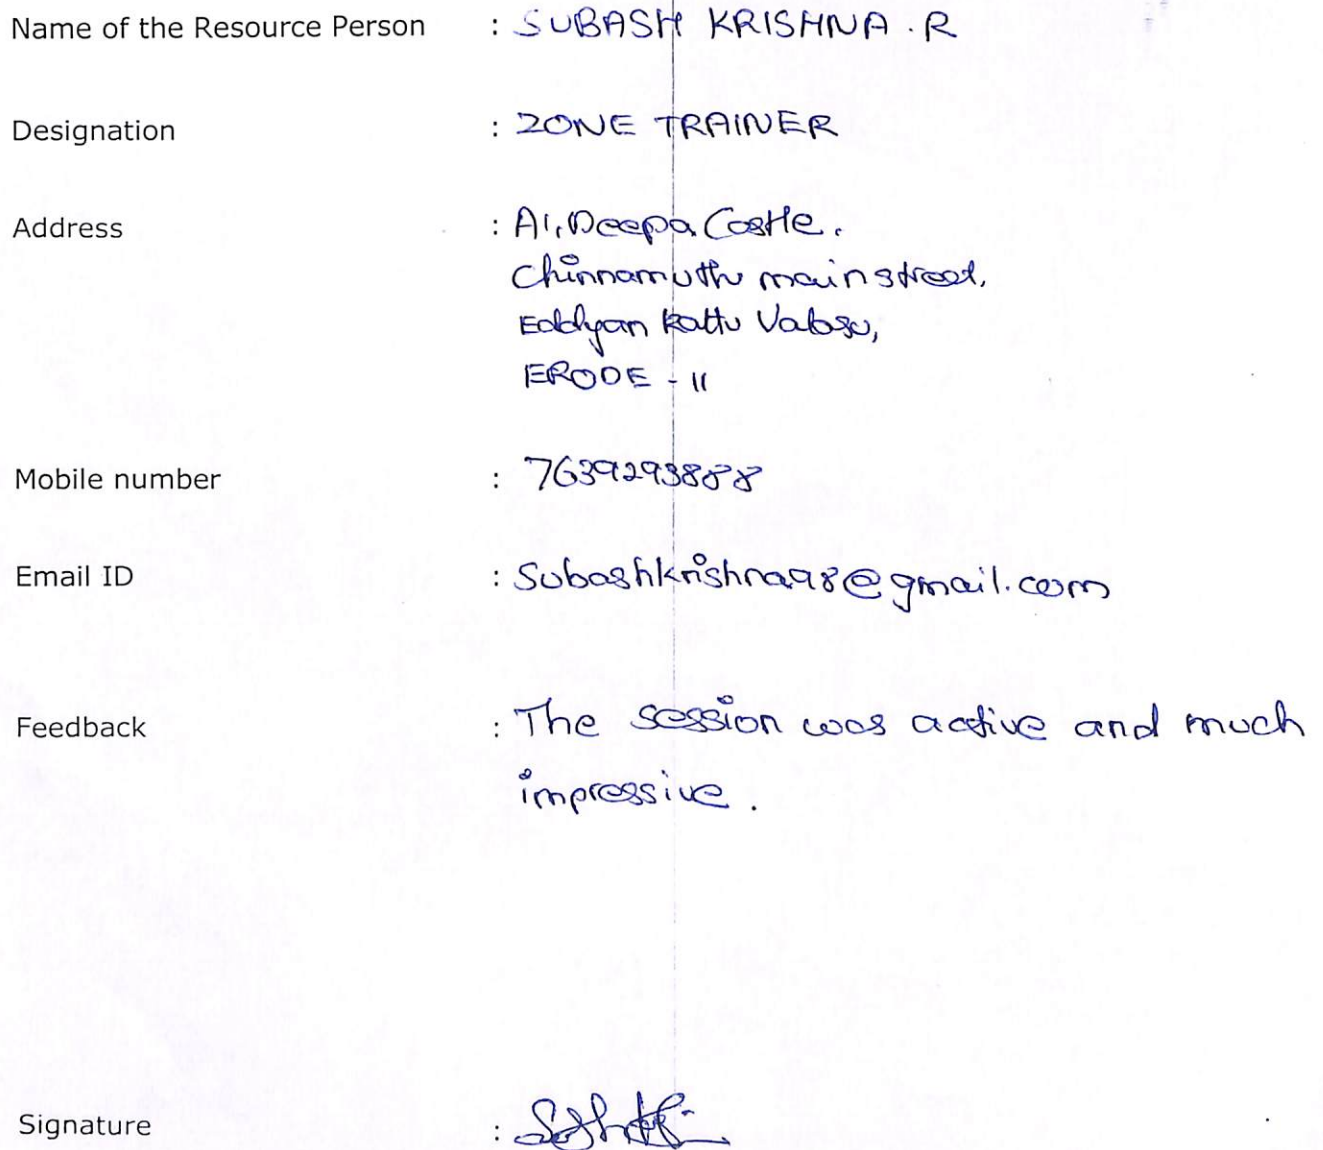 Name of the Resource Person : SUBASH KRISHNA . R
Designation : ZONE TRAINER
Address : A1, Deepa Castle.
Chinnamuthu main street,
Eddyan Kattu Valasu,
ERODE - 11
Mobile number : 7639293888
Email ID : Subashkrishna98@gmail.com
Feedback : The session was active and much
impressive .
Signature :